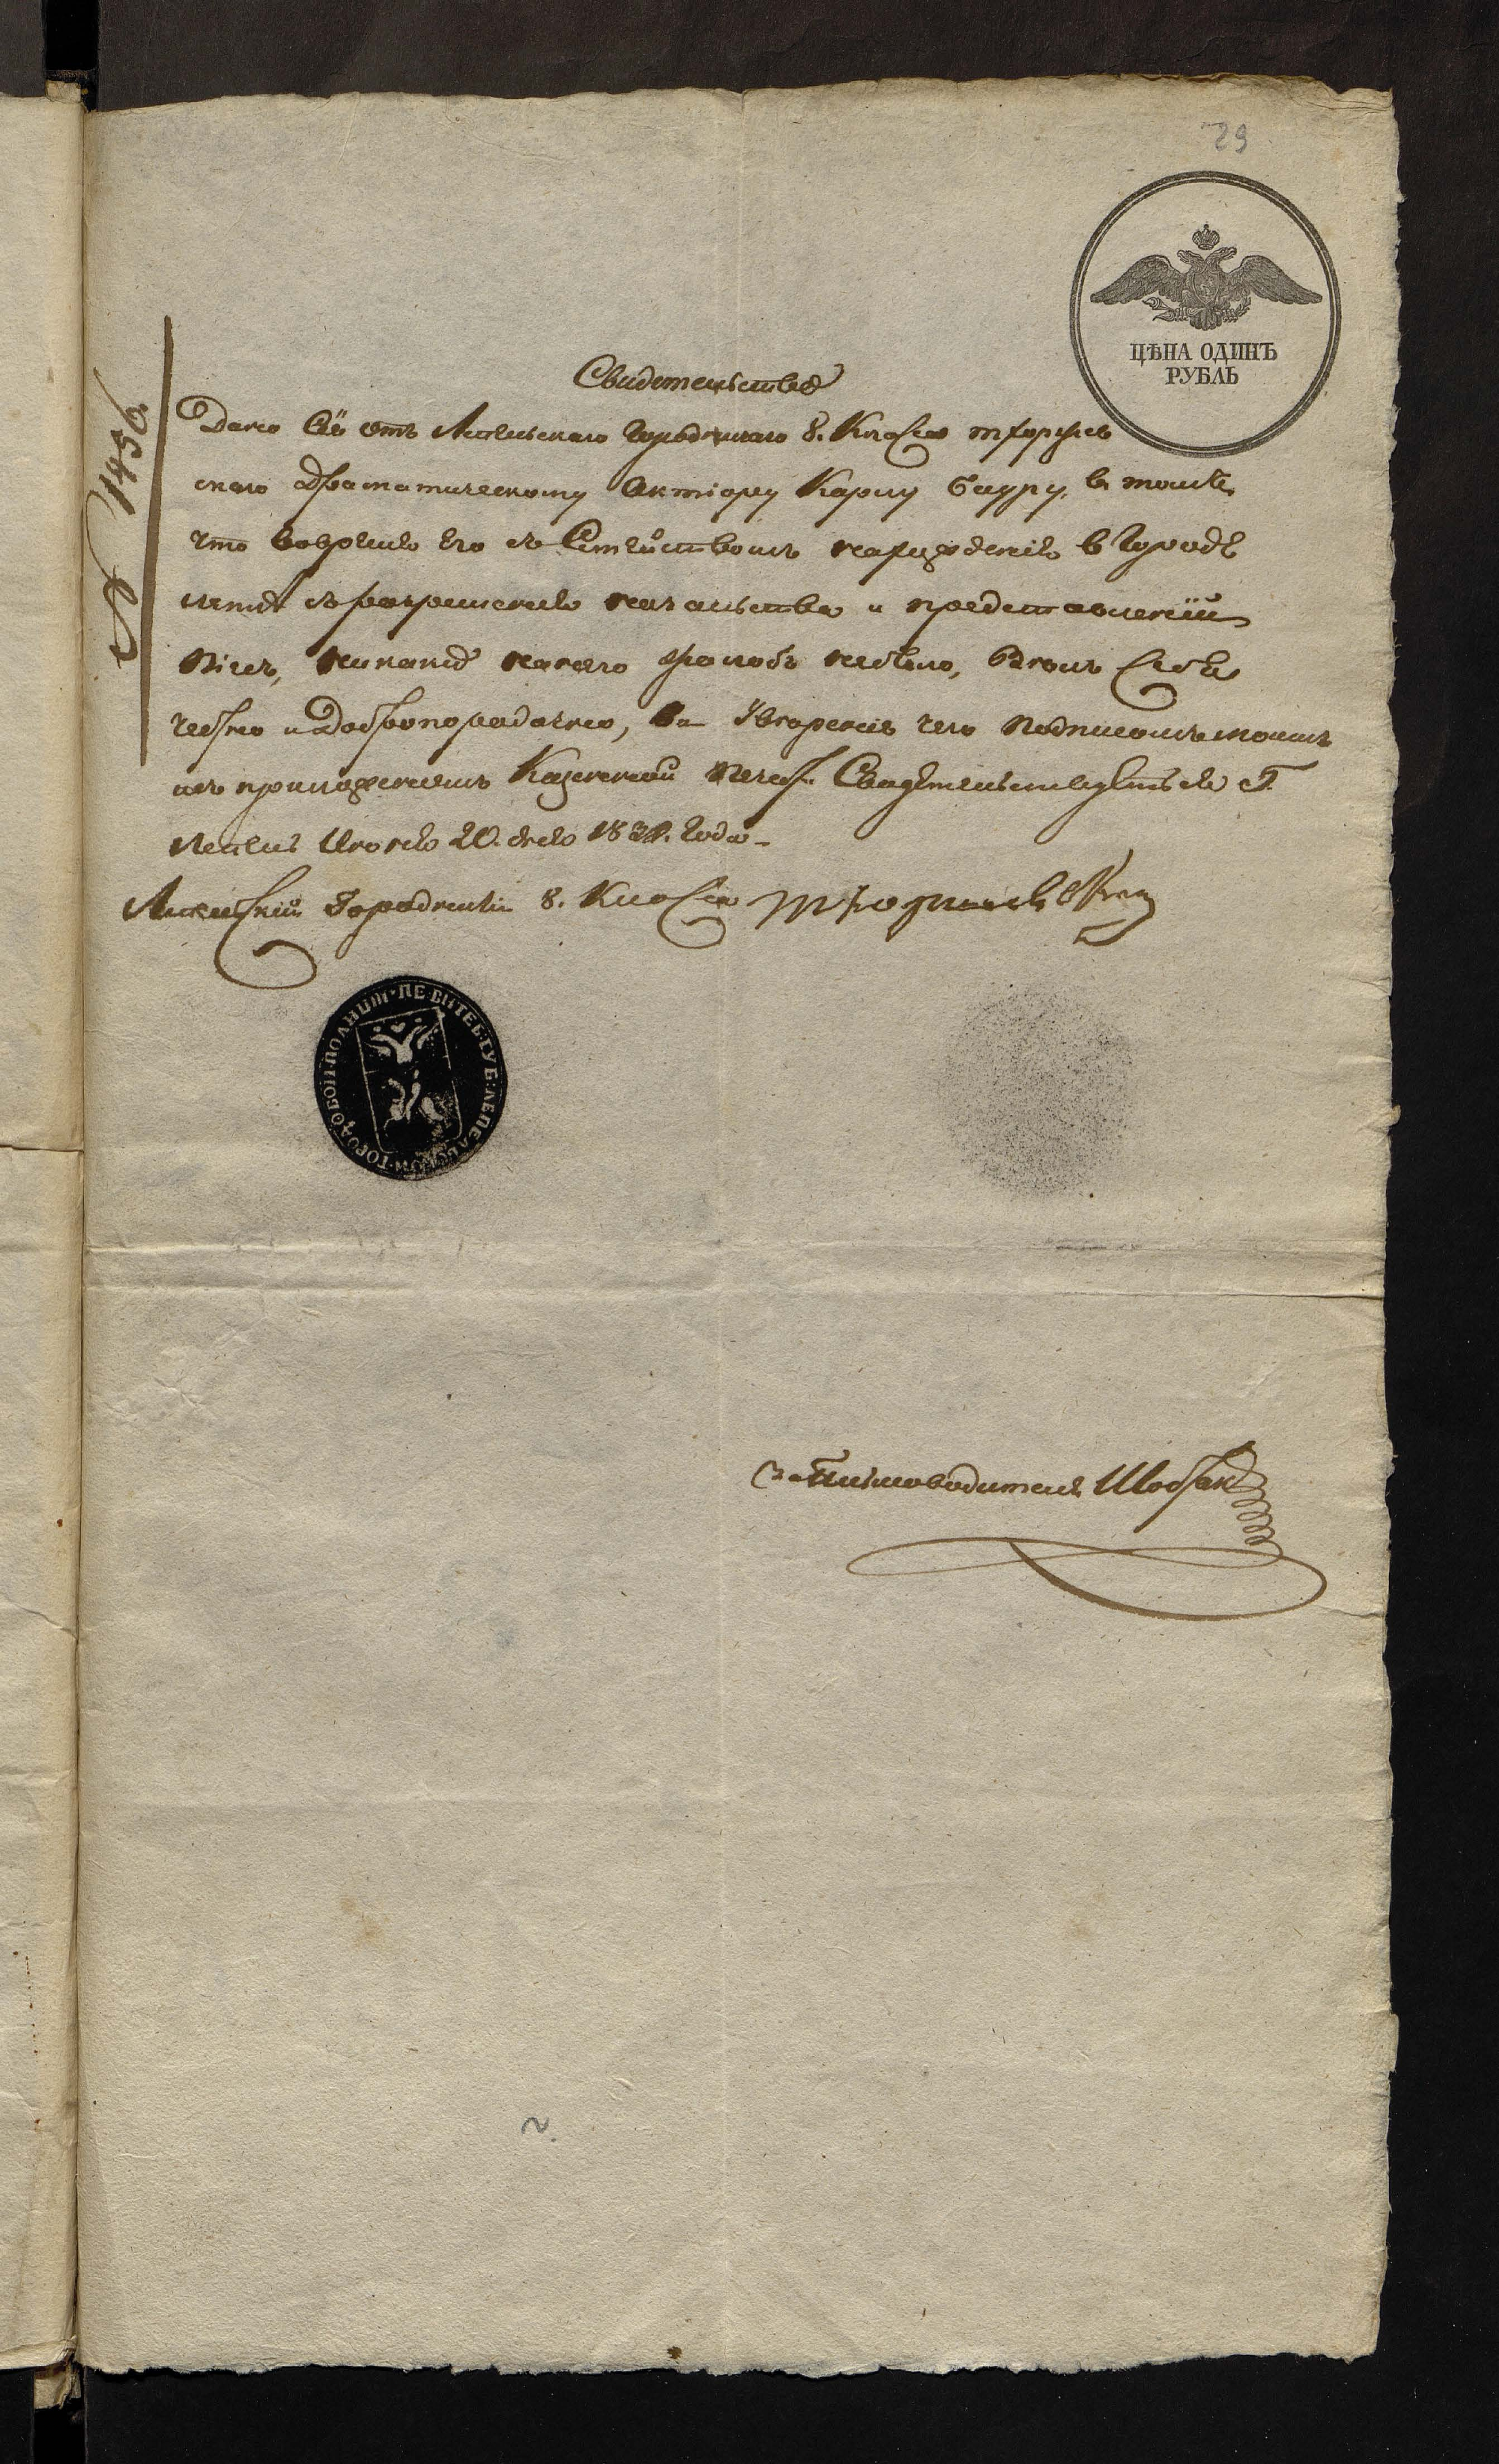 29
ЦѢНА ОДИНЪ
РУБЛЬ
№ 1456
Свидетельство
Дано Сіе отъ Лепельскаго Городничаго 8. Класса
скаго драматическому Актіору Карлу Бауру, в томъ
что вовремя Его съ Семѣйствомъ нахожденія в Городѣ
съ разрешенія начальства и представленіи
Піесъ, никакихъ на него жалобъ небыло, велъ Себя
честно и Добропорядочно, Въ Увѣреніе чего Подписомъ моимъ
съ приложеніемъ Казенной Печати Свидѣтельствуется Г.
Лепель Іюня 20. дня 183 Года
Лепельскій Городничій 8. Класса
ПЕ. ВИТЕБ. ГУБ. ЛЕПЕЛЬСКОЙ ГОРОДОВОЙ ПОЛИЦІИ
Письмоводитель